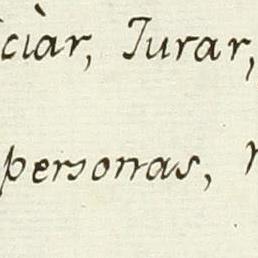 ciàr, Jurar,
personas,